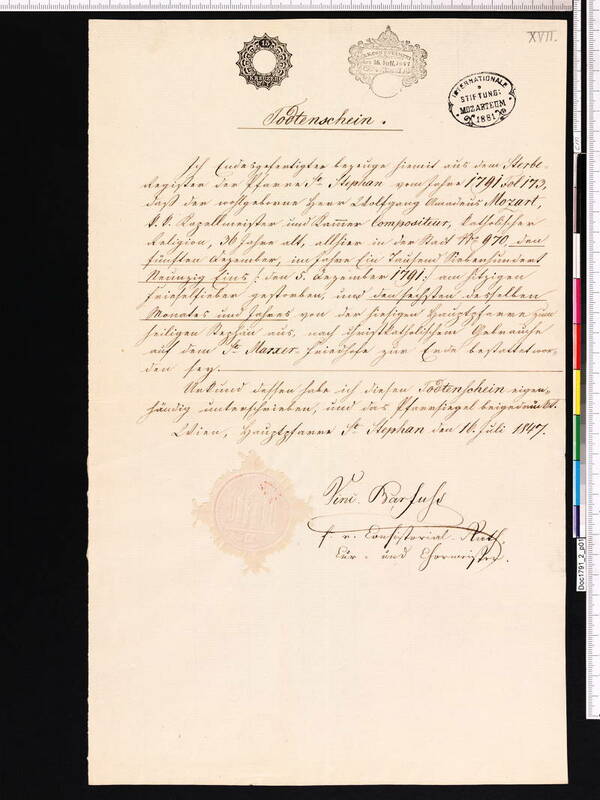 XVII.
15
INTERNATIONALE
STIFTUNG:
MOZARTEUM
1881
Todtenschein.
Ich Endesgefertigter bezeuge hiemit aus dem Sterbe-
Register der Pfarre St. Stephan vom Jahre 1791 Fol 173,
daß der wohlgeborne Herr Wolfgang Amadeus Mozart,
k. k. Kapellmeister und Kammer Compositeur, katholischer
Religion, 36 Jahre alt, allhier in der Stadt No. 970, den
fünften Dezember, im Jahre Ein Tausend Siebenhundert
Neunzig Eins /: den 5. Dezember 1791 :/ am hitzigen
Frieselfieber gestorben, und den sechsten desselben
Monates und Jahres von der hiesigen Hauptpfarre zum
heiligen Stephan aus, nach christkatholischem Gebrauche
auf dem St. Marxer Friedhofe zur Erde bestattet wor-
den sey.
Urkund dessen habe ich diesen Todtenschein eigen-
händig unterschrieben, und das Pfarrsiegel beigedrückt.
Wien, Hauptpfarre St. Stephan den 16. Juli 1847.
Barfuß
f. e. Consistorial-Rath,
Cur- und Chormeister.
Doc1791_2_p01
cm